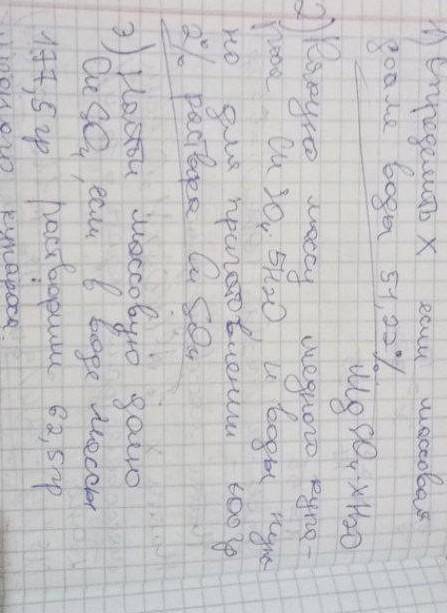 1) Определить X если массовая
доля воды 51,22%
MgSO4·xH2O
2) Какую массу медного купо-
роса CuSO4·5H2O и воды нуж-
но для приготовлении 400 гр
2% раствора CuSO4
3) Найти массовую долю
CuSO4, если в воде массы
177,5 гр растворили 62,5 гр
медного купороса.